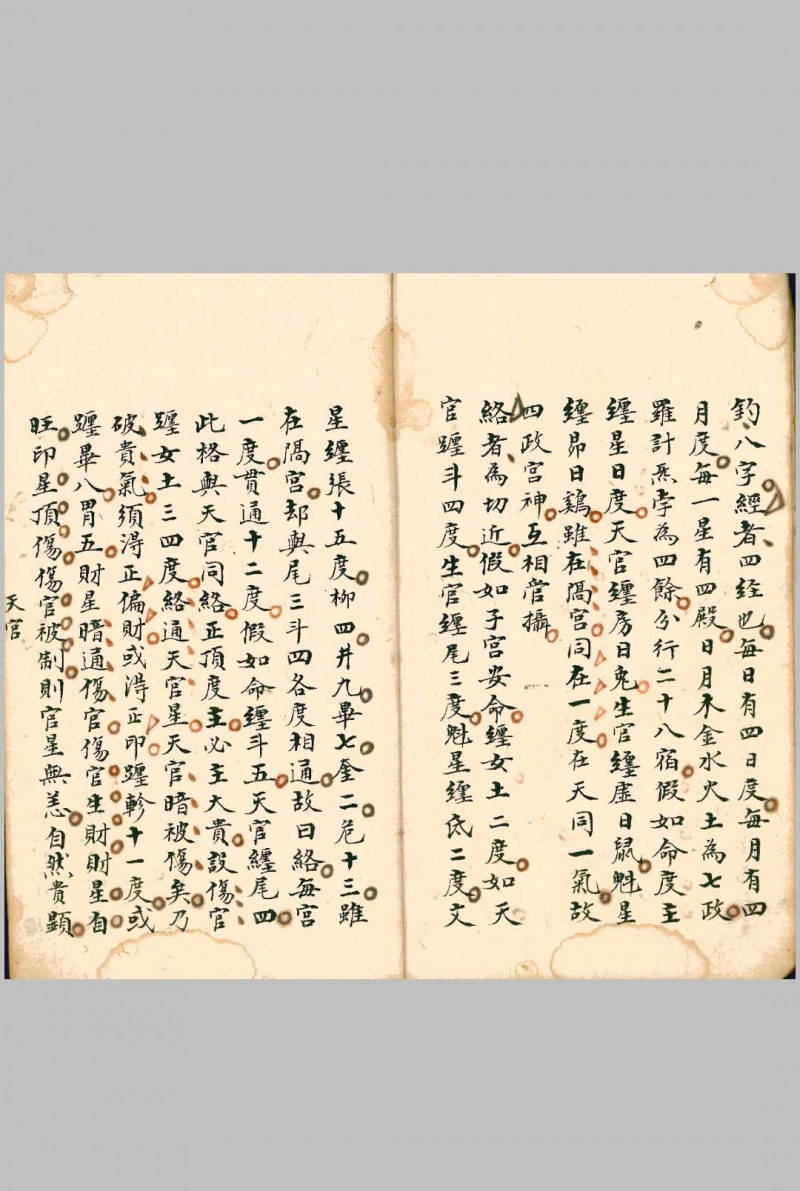 鈞八字經者四经也每日有四日度每月有四
月度每一星有四殿日月木金水火土為七政
羅計炁孛為四餘分行二十八宿假如命度主
纏星日度天官纏房日兔生官纏虛日鼠魁星
纏昴日鷄雖在隔宮同在一度在天同一氣故
四政宮神互相管攝
絡者為切近假如子宮安命纏女土二度如天
官躔斗四度生官纏尾三度魁星纏氐二度文
星纏張十五度柳四井九畢七奎二危十三雖
在隔宮却與尾三斗四各度相通故曰絡每宮
一度貫通十二度假如命纏斗五天官纏尾四
此格與天官同絡正頂度主必主大貴設傷官
躔女土三四度絡通天官星天官暗被傷矣乃
破貴氣須淂正偏財或淂正印躔軫十一度或
躔畢八胃五財星暗通傷官傷官生財財星自
旺印星頂傷傷官被制則官星無恙自然貴顯
天官